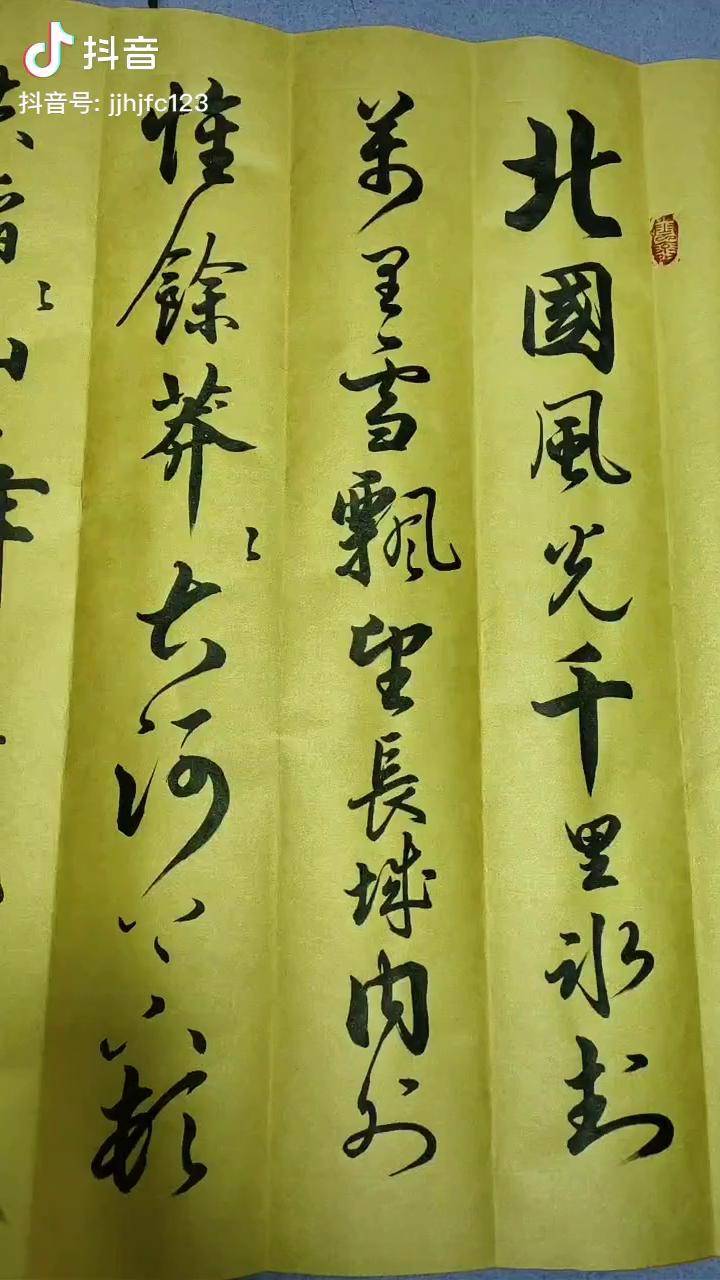 抖音
抖音号: jjhjfc123
北國風光千里冰封
萬里雪飄望長城內外
惟餘莽〻大河上下頓